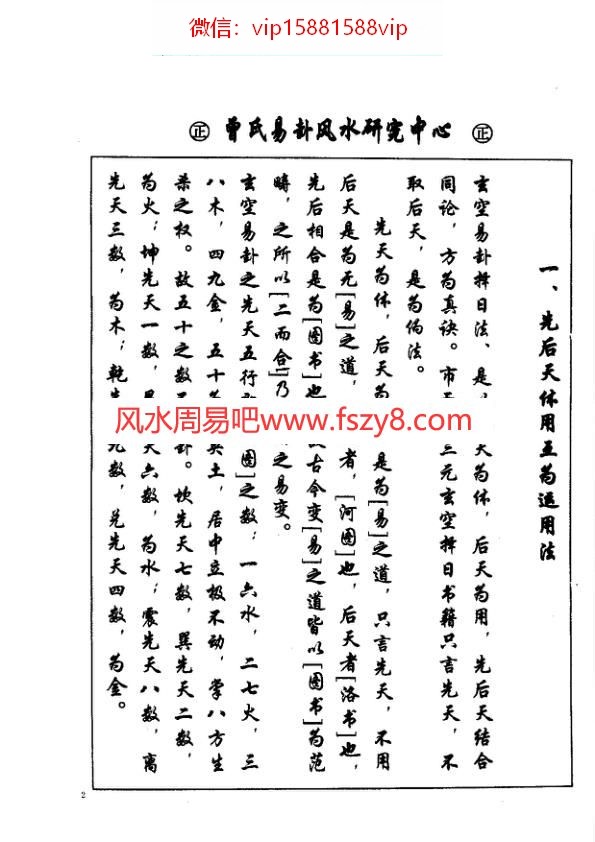 微信：vip15881588vip
㊣ 曾氏易卦风水研究中心 ㊣
一、先后天体用互为运用法
玄空易卦择日法、是以 天为体，后天为用，先后天结合
同论，方为真诀。市 三元玄空择日书籍只言先天，不
取后天，是为偽法。
先天为体，后天为 是为[易]之道，只言先天，不用
后天是为无[易]之道， 者，[河图]也，后天者[洛书]也，
先后相合是为[图书]也 古今变[易]之道皆以[图书]为范
畴，之所以[二而合]乃 之易变。
玄空易卦之先天五行 图]之数；一六水，二七火，三
八木，四九金，五十 土，居中立极不动，掌八方生
杀之权。故五十之数 卦。坎先天七数，巽先天二数，
为火；坤先天一数， 天六数，为水；震先天八数，离
先天三数，为木；乾 九数，兑先天四数，为金。
风水周易吧www.fszy8.com
2